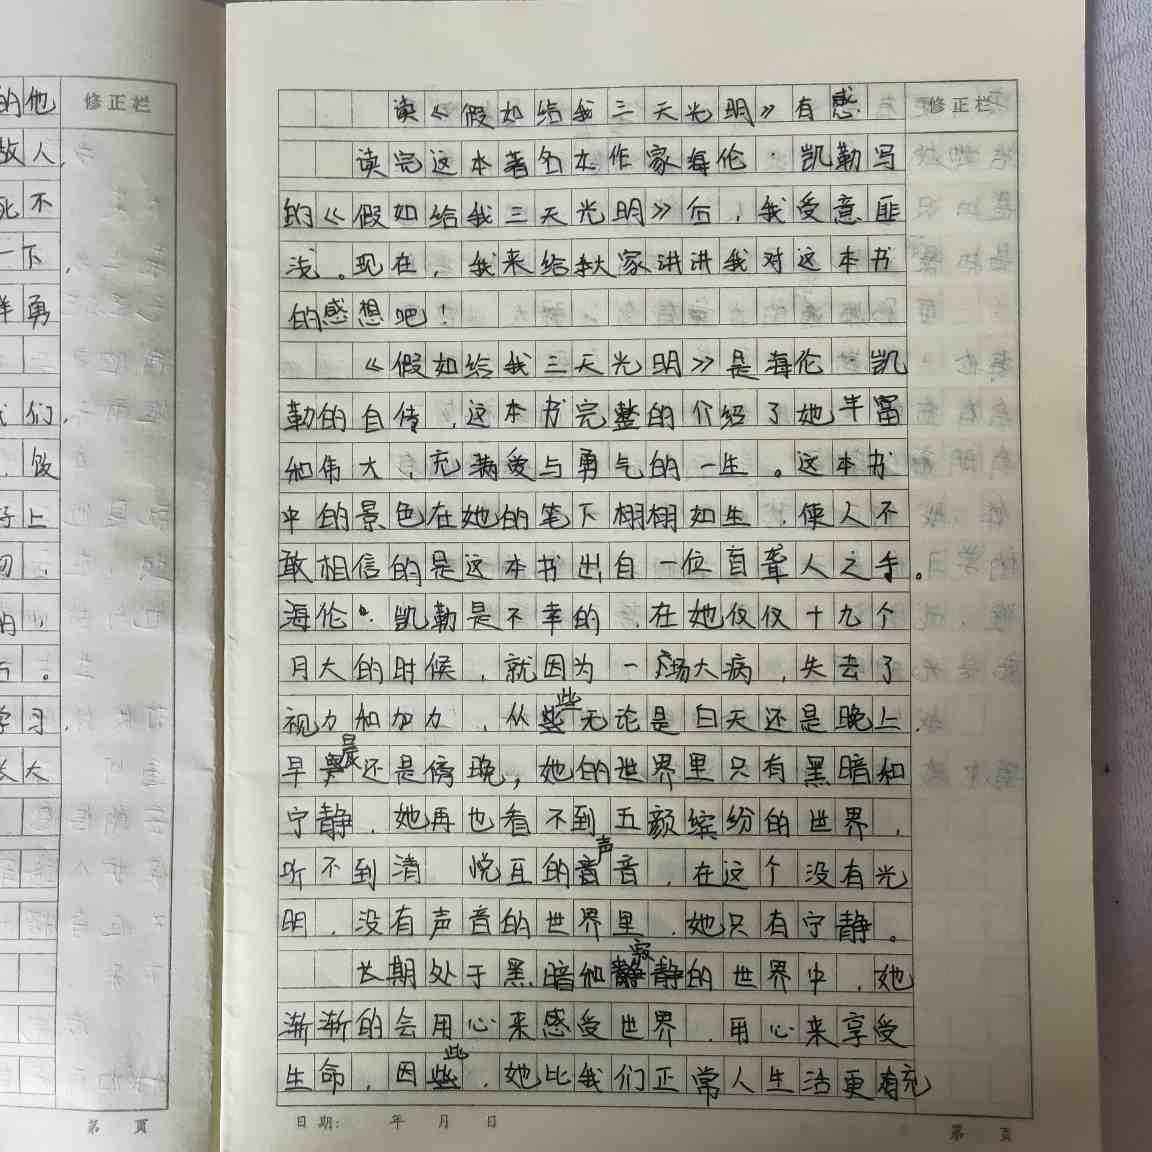 的他
修正栏
故人,
死不
一下,
样勇
我们,
子上
学习,
长大
第 页
读《假如给我三天光明》有感
修正栏
读完这本著名女作家海伦·凯勒写
的《假如给我三天光明》后,我受意匪
浅。现在,我来给大家讲讲我对这本书
的感想吧!
《假如给我三天光明》是海伦 凯
勒的自传,这本书完整的介绍了她丰富
和伟大,充满爱与勇气的一生。这本书
中的景色在她的笔下栩栩如生,使人不
敢相信的是这本书出自一位盲聋人之手。
海伦·凯勒是不幸的,在她仅仅十九个
月大的时候,就因为一场大病,失去了
视力和加力,从些无论是白天还是晚上,
早晨还是傍晚,她的世界里只有黑暗和
宁静,她再也看不到五颜缤纷的世界,
听不到清 悦耳的声音,在这个没有光
明,没有声音的世界里,她只有宁静。
长期处于黑暗和寂静的世界中,她
渐渐的会用心来感受世界,用心来享受
生命,因此,她比我们正常人生活更有充
日期: 年 月 日
第 页